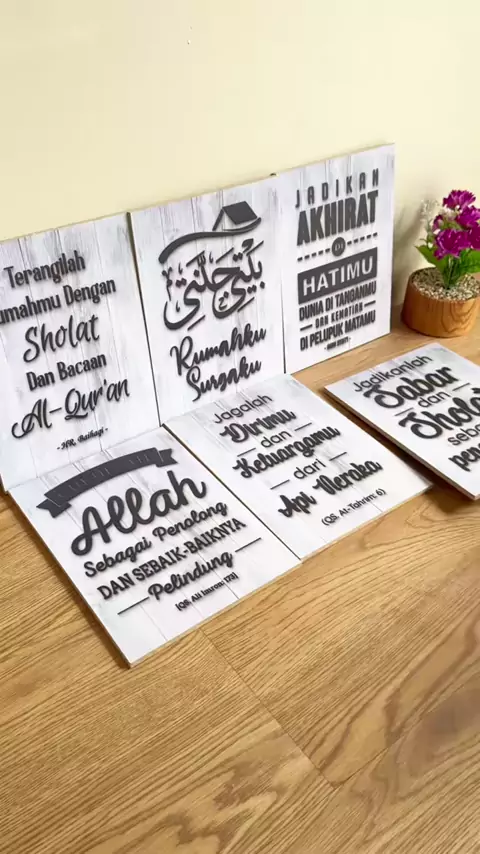 Terangilah
umahmu Dengan
Sholat
Dan Bacaan
Al-Qur'an
- HR. Baihaqi -
بيتي جنتي
Rumahku
Surgaku
JADIKAN
AKHIRAT
DI
HATIMU
DUNIA DI TANGANMU
DAN KEMATIAN
DI PELUPUK MATAMU
Allah
Sebagai Penolong
DAN SEBAIK-BAIKNYA
Pelindung
(QS. Ali Imron: 173)
Jagalah
Dirimu
dan
Keluargamu
dari
Api Neraka
(QS. At-Tahrim: 6)
Jadikanlah
Sabar
dan
Shola
seba
peno